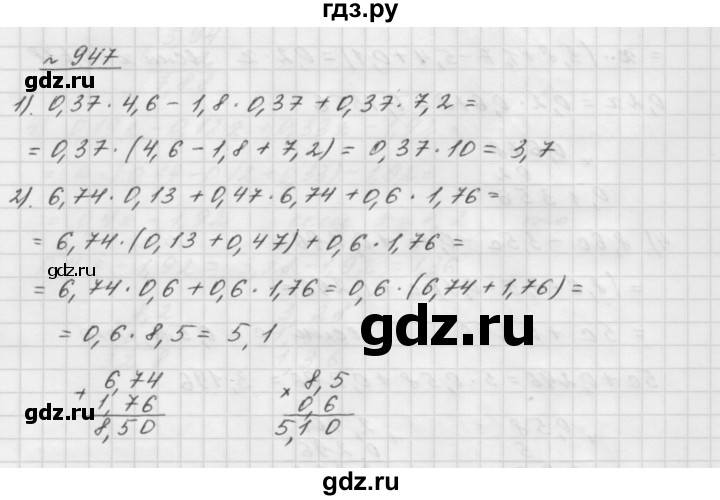 гдз.ру
№ 947
1). 0,37 · 4,6 - 1,8 · 0,37 + 0,37 · 7,2 =
= 0,37 · (4,6 - 1,8 + 7,2) = 0,37 · 10 = 3,7
2). 6,74 · 0,13 + 0,47 · 6,74 + 0,6 · 1,76 =
= 6,74 · (0,13 + 0,47) + 0,6 · 1,76 =
= 6,74 · 0,6 + 0,6 · 1,76 = 0,6 · (6,74 + 1,76) =
= 0,6 · 8,5 = 5,1
+ 6,74
1,76
8,50
× 8,5
0,6
5,10
gdz.ru
gdz.ru
gdz.ru
gdz.ru
gdz.ru
gdz.ru
gdz.ru